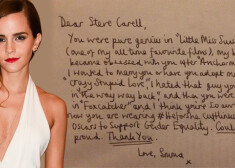 Dear Steve Carell,
You were pure genius in "Little Miss Sun
(one of my all time favourite films), my b
became obsessed with you after "Anchorm
I wanted to marry you where you adopt me
Crazy Stupid Love", I hated that guy you
in the way way back" and then you were
in "Foxcatcher" and I think you're so
now you are wearing #HeForShe Cufflinks
Oscars to Support Gender Equality. Coul
proud. Thank You.
Love, Emma
x